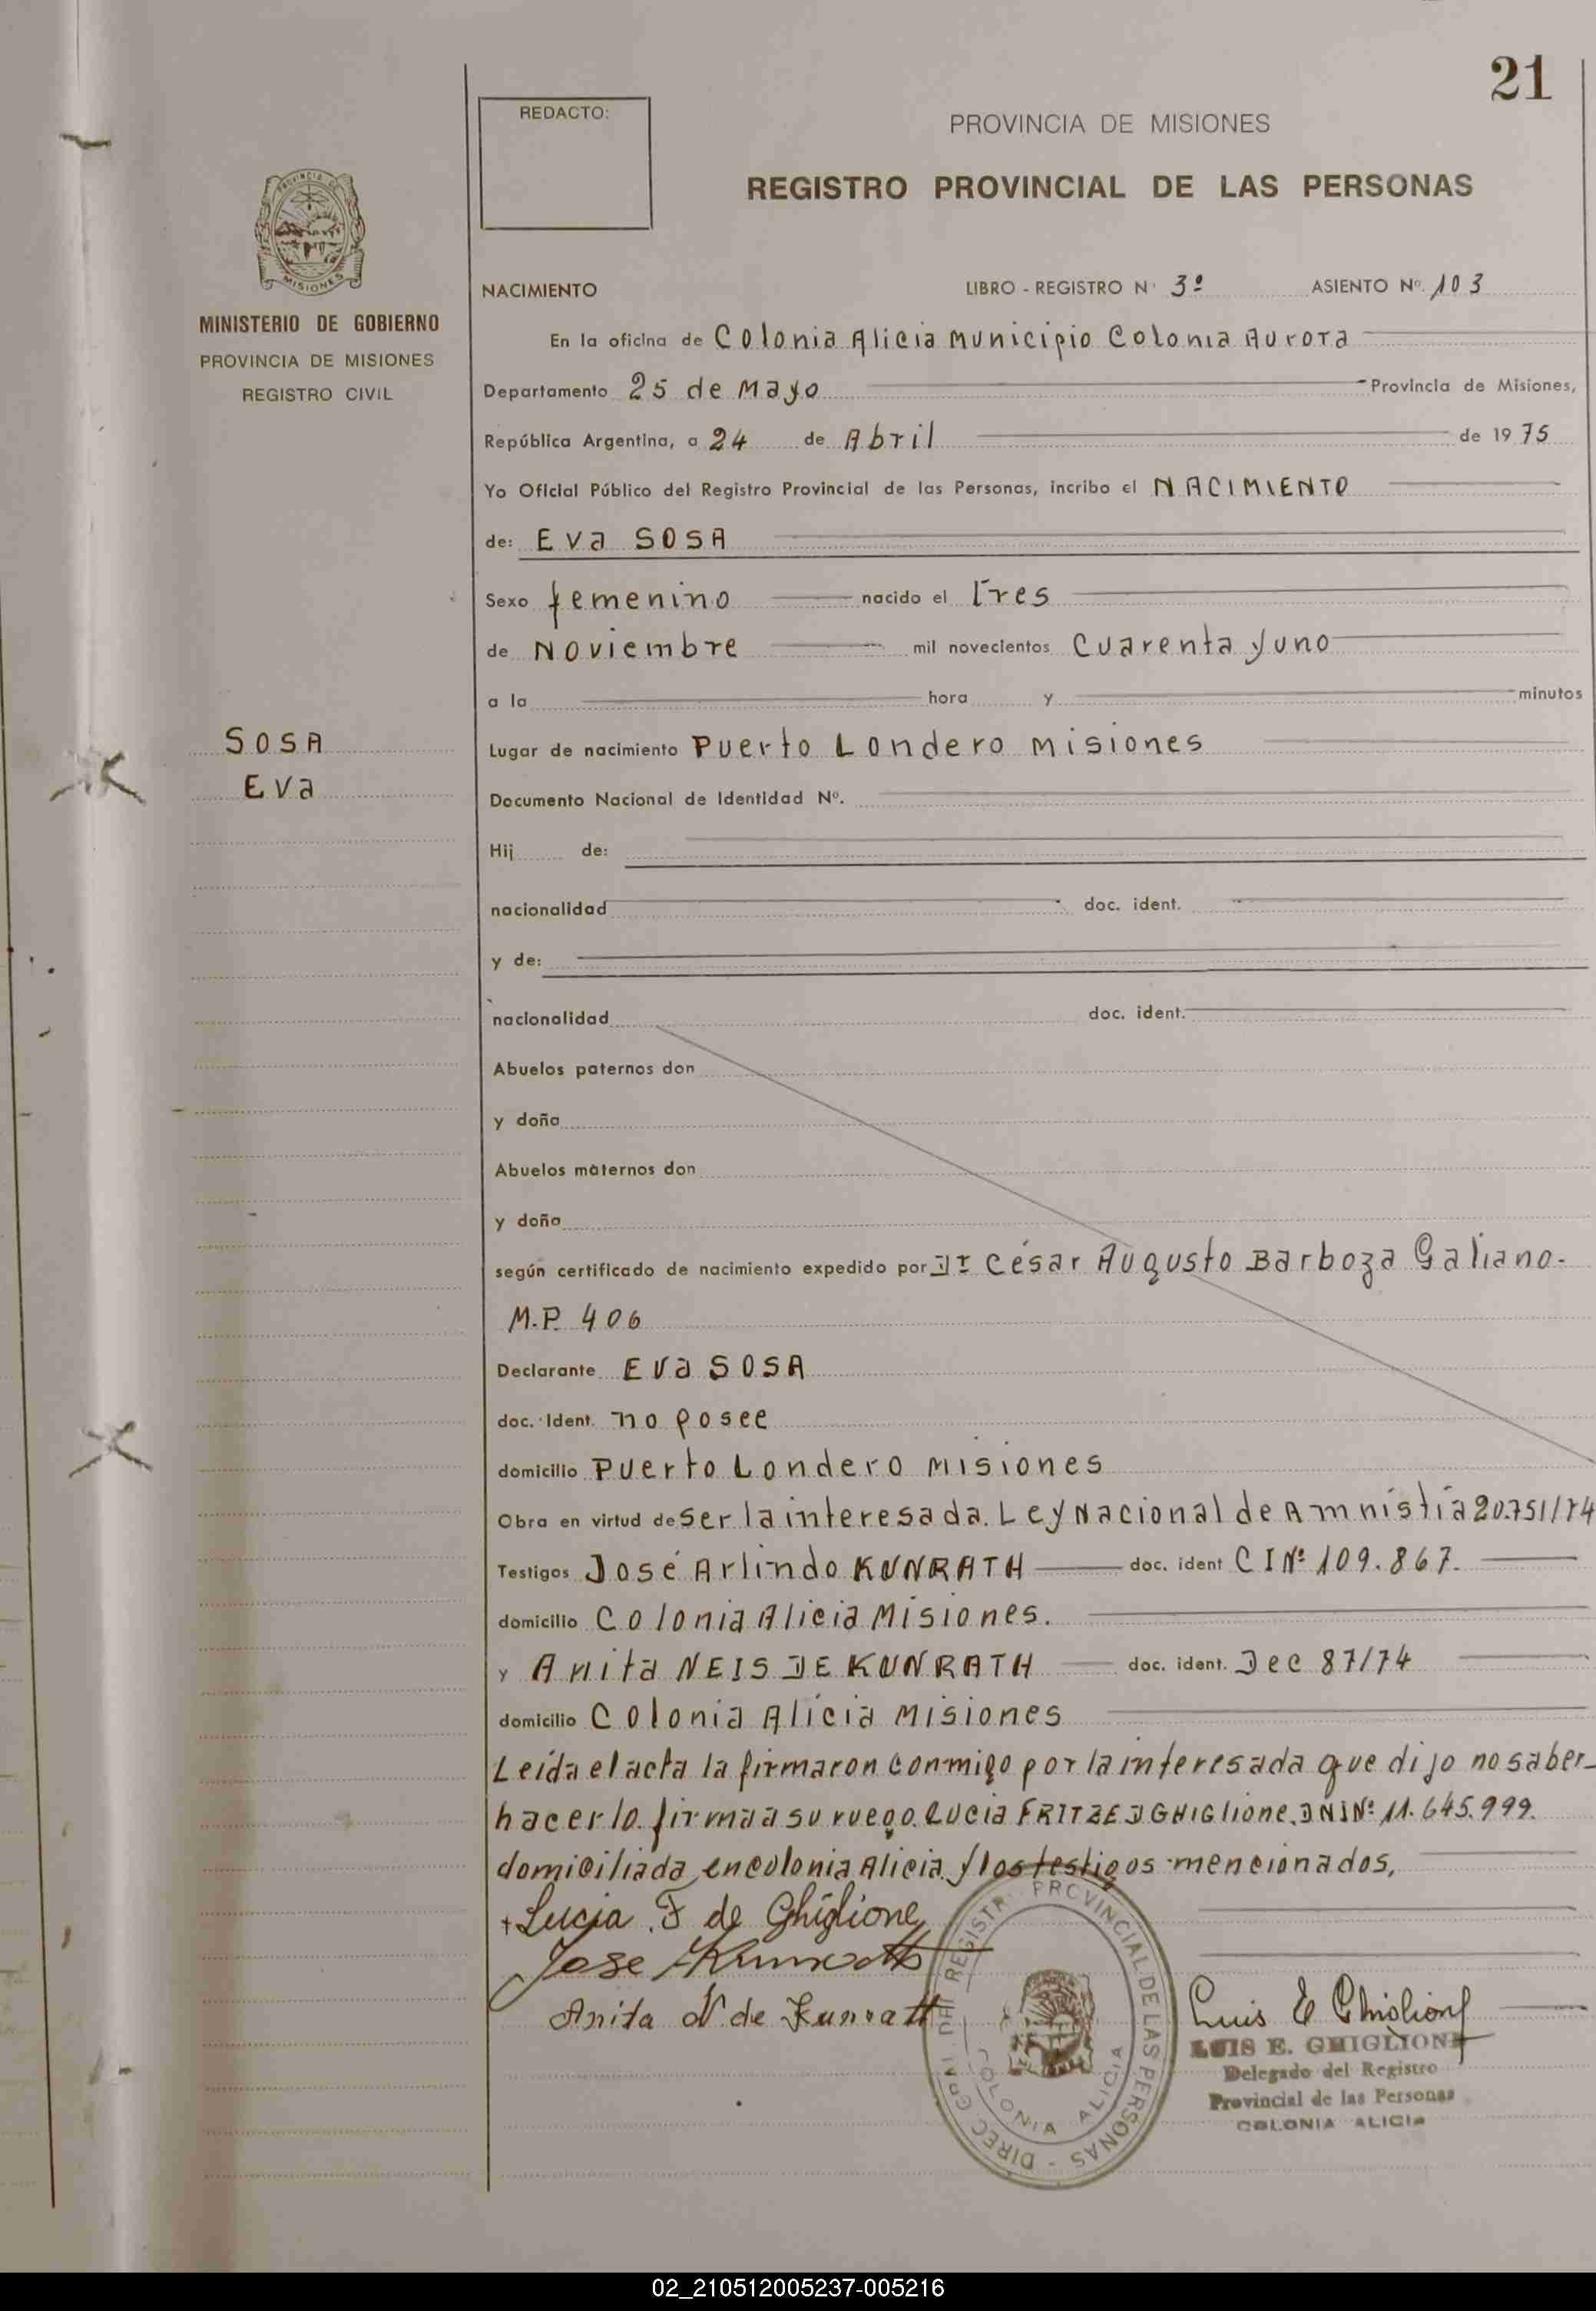 21
REDACTO:
PROVINCIA DE MISIONES
REGISTRO PROVINCIAL DE LAS PERSONAS
PROVINCIA DE
MISIONES
MINISTERIO DE GOBIERNO
PROVINCIA DE MISIONES
REGISTRO CIVIL
NACIMIENTO LIBRO - REGISTRO N° 3º ASIENTO Nº 103
En la oficina de Colonia Alicia Municipio Colonia Aurora
Departamento 25 de Mayo Provincia de Misiones,
República Argentina, a 24 de Abril de 1975
Yo Oficial Público del Registro Provincial de las Personas, incribo el NACIMIENTO
de: Eva SOSA
Sexo femenino nacido el Tres
de Noviembre mil novecientos Cuarenta y uno
a la hora y minutos
SOSA
Eva
Lugar de nacimiento Puerto Londero Misiones
Documento Nacional de Identidad Nº.
Hij de:
nacionalidad doc. ident.
y de:
nacionalidad doc. ident.
Abuelos paternos don
y doña
Abuelos maternos don
y doña
según certificado de nacimiento expedido por Dr César Augusto Barboza Galiano.
M.P. 406
Declarante Eva SOSA
doc. Ident. no posee
domicilio Puerto Londero Misiones
Obra en virtud de ser la interesada. Ley Nacional de Amnistía 20.751/74
Testigos José Arlindo KUNRATH doc. ident CI Nº 109.867.
domicilio Colonia Alicia Misiones.
y Anita NEIS DE KUNRATH doc. ident. Dec 87/74
domicilio Colonia Alicia Misiones
Leída el acta la firmaron conmigo por la interesada que dijo no saber
hacerlo firma a su ruego. Lucia FRITZE D GHIGlione. DNI Nº 11.645.999.
domiciliada en Colonia Alicia y los testigos mencionados,
Lucia F de Ghiglione
Jose A Kunrath
Anita N de Kunrath
DIREC GRAL DEL REGISTR PROVINCIAL DE LAS PERSONAS -
COLONIA ALICIA
Luis E Ghiglione
LUIS E. GHIGLIONE
Delegado del Registro
Provincial de las Personas
COLONIA ALICIA
02_210512005237-005216